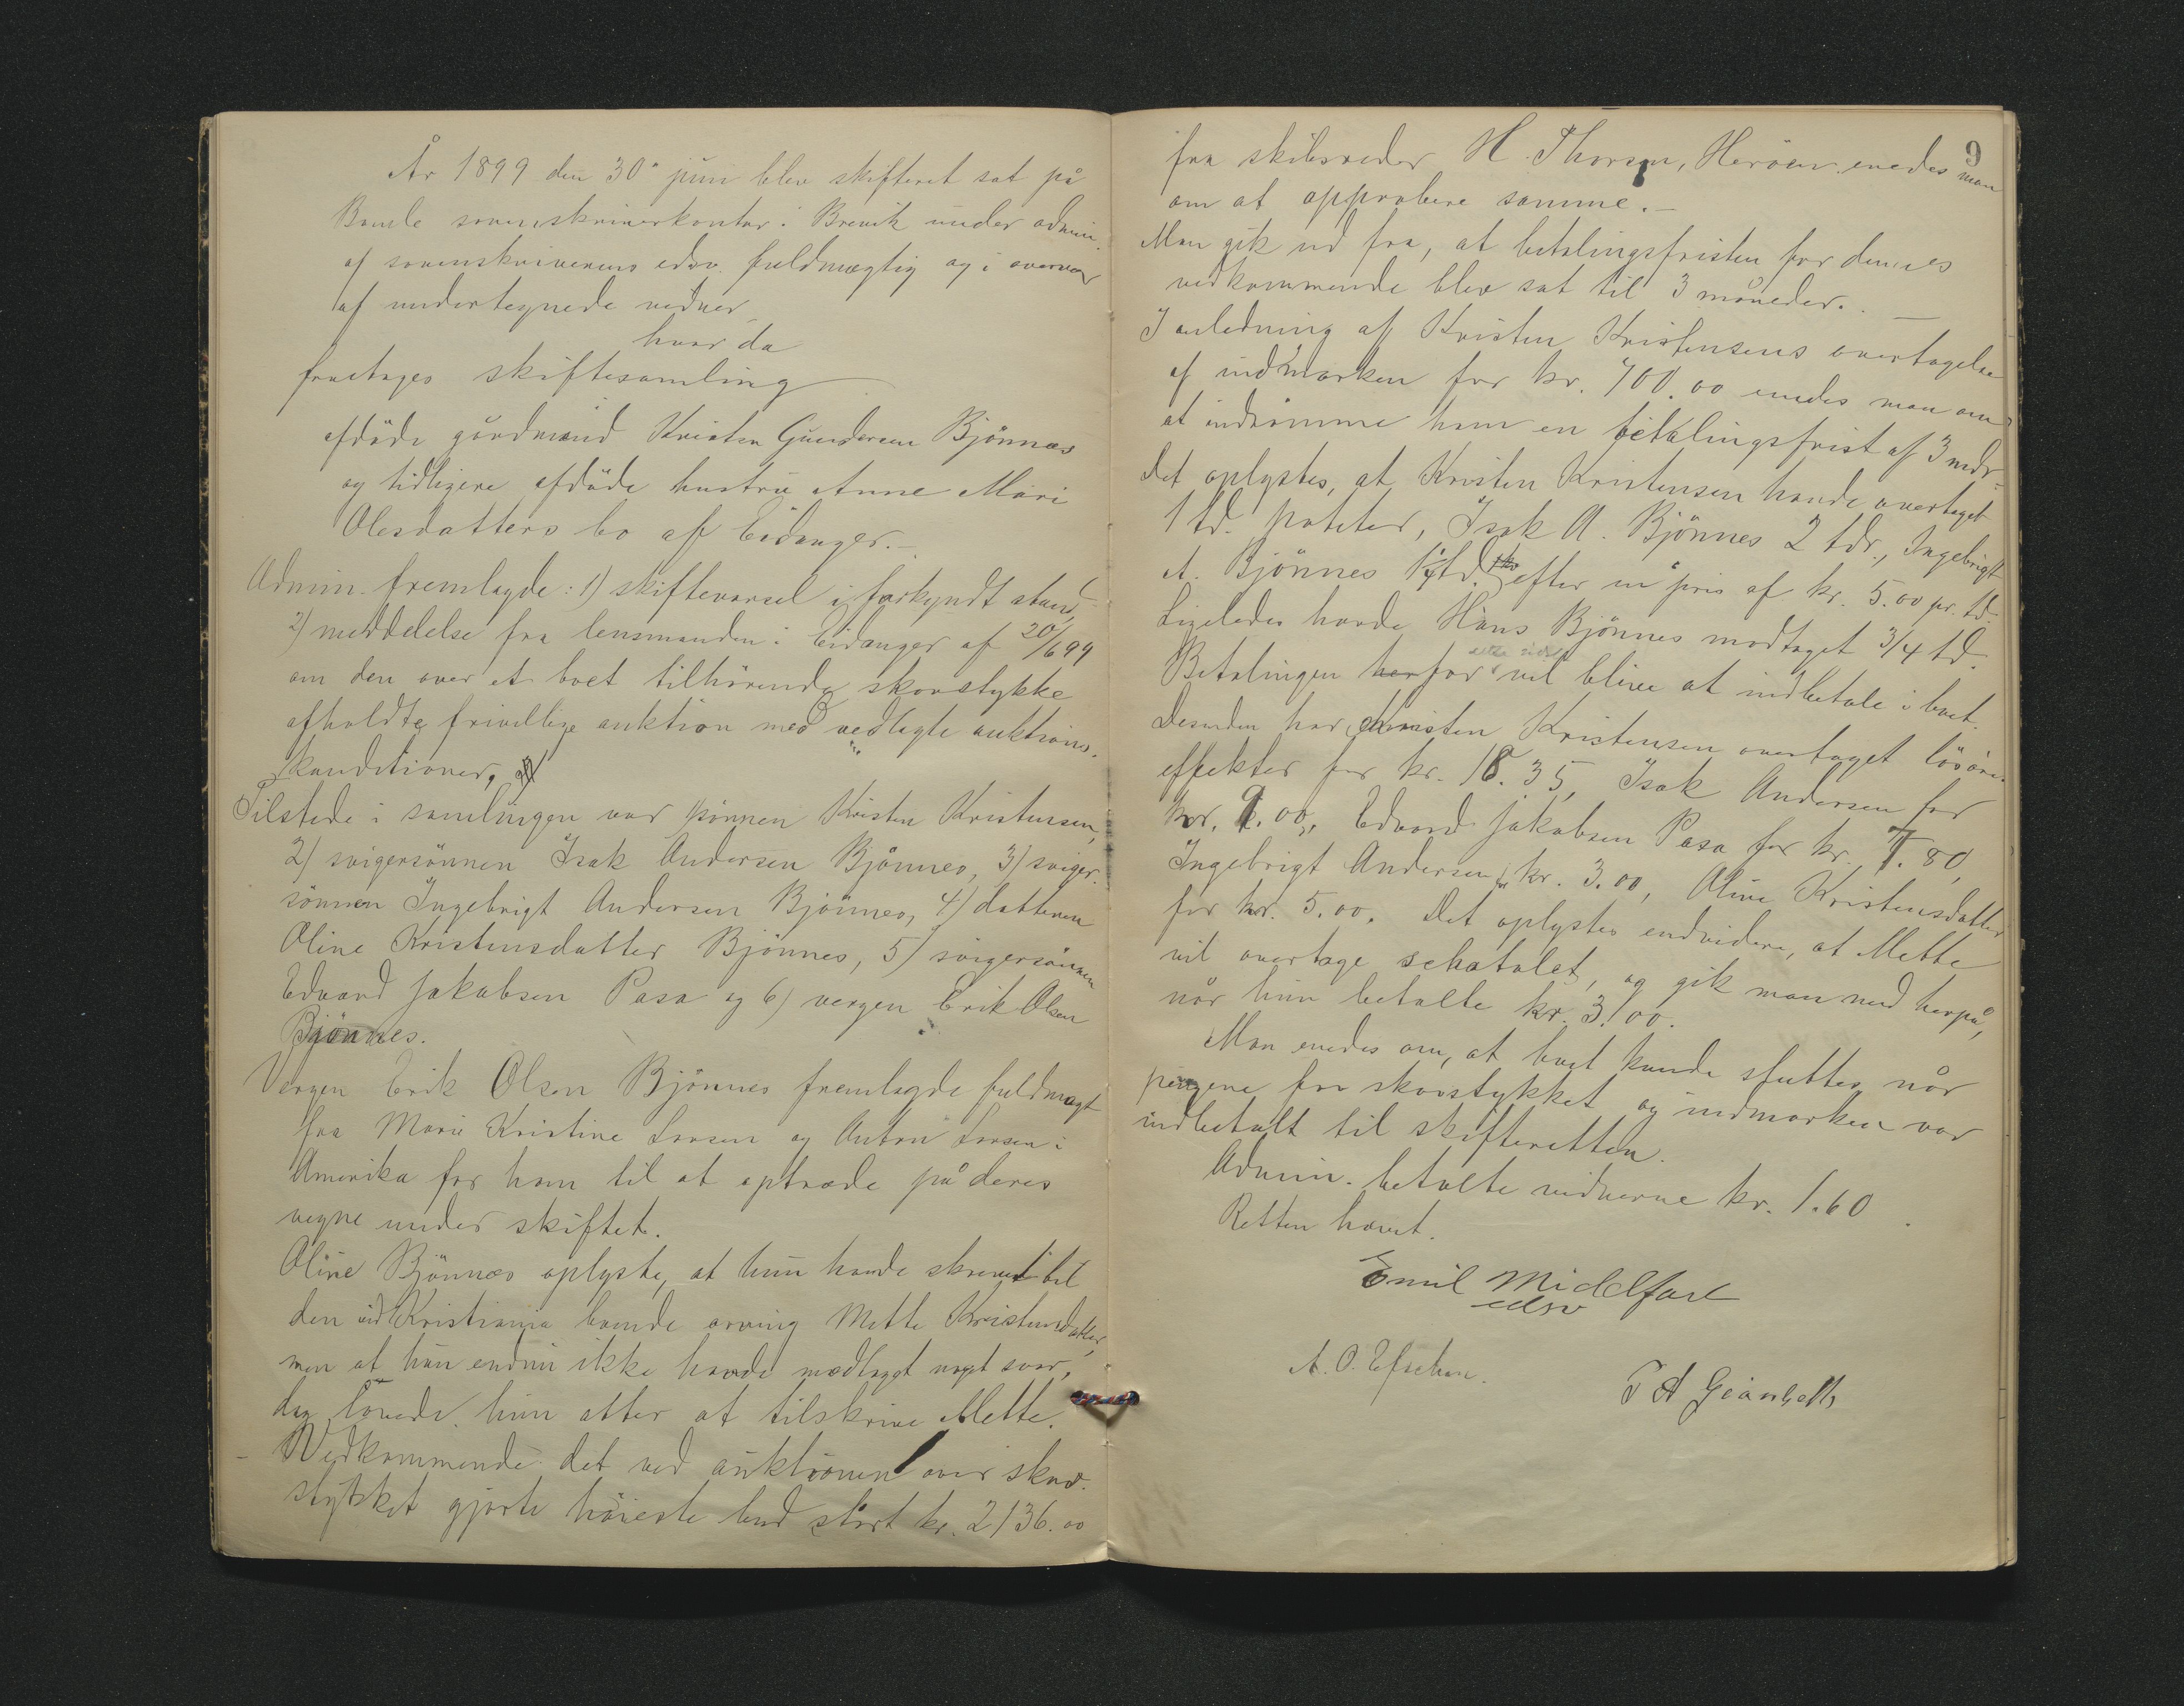 År 1899 den 30 juni blev skifteret sat på
Bamle sorenskriverkontor i Brevik under admin.
af sorenskriverens edsv. fuldmægtig og i overvær
af undertegnede vidner
hvor da
foretoges skiftesamling
afdöde gårdmand Kristen Gundersen Bjönnes
og tidligere afdöde hustru Anne Mari
Olesdatters bo af Eidanger.-
Admin. fremlagde: 1) skiftevarsel i forkyndt stand,
2) meddelelse fra lensmanden i Eidanger af 20/6 99
om den over et boet tilhörende skovstykke
afholdte frivillige auktion med vedlagte auktions-
konditioner,
Tilstede i samlingen var sönnen Kristen Kristensen,
2) svigersönnen Isak Andersen Bjönnes, 3) sviger-
sönnen Ingebrigt Andersen Bjönnes, 4) datteren
Oline Kristensdatter Bjönnes, 5) svigersönnen
Edvard Jakobsen Pasa og 6) vergen Erik Olsen
Bjönnes.
Vergen Erik Olsen Bjönnes fremlagde fuldmagt
fra Marie Kristine Larsen og Anton Larsen i
Amerika for ham til at optræde på deres
vegne under skiftet.
Oline Bjönnes oplyste, at hun havde skrevet til
den ved Kristiania boende arving Mette Kristensdatter,
men at hun endnu ikke havde modtaget noget svar,
dog lovede hun atter at tilskrive Mette.
Vedkommende det ved auktionen over skov-
stykket gjorte höieste bud stort kr. 2136.00
9
fra skibsreder H. Thorsen, Heröen enedes man
om at approbere samme.-
Man gik ud fra, at betalingsfristen for dennes
vedkommende blev sat til 3 måneder. -
I anledning af Kristen Kristensens overtagelse
af indmarken for kr. 700.00 enedes man om
at indrömme ham en betalingsfrist af 3 mdr.
Det oplystes, at Kristen Kristensen havde overtaget
1 td. poteter, Isak A. Bjönnes 2 tdr., Ingebrigt
A. Bjönnes td. efter en pris af kr. 5.00 pr. td.
Ligeledes havde Hans Bjönnes modtaget 3/4 td.
Betalingen herfor vil blive at indbetale i boet.
Desuden har Kristen Kristensen overtaget lösöre-
effekter for kr. 18.35, Isak Andersen for
kr. 9.00, Edvard Jakobsen Pasa for kr. 7.80,
Ingebrigt Andersen for kr. 3.00, Oline Kristensdatter
for kr. 5.00. Det oplystes endvidere, at Mette
vil overtage schatolet, og gik man med herpå,
når hun betalte kr. 3.00.
Man enedes om, at boet kunde sluttes når
pengene for skovstykket og indmarken var
indbetalt til skifteretten.
Admin. betalte vidnerne kr. 1.60.
Retten hævet.
Emil Middelfart
edsv
A. O.
T A